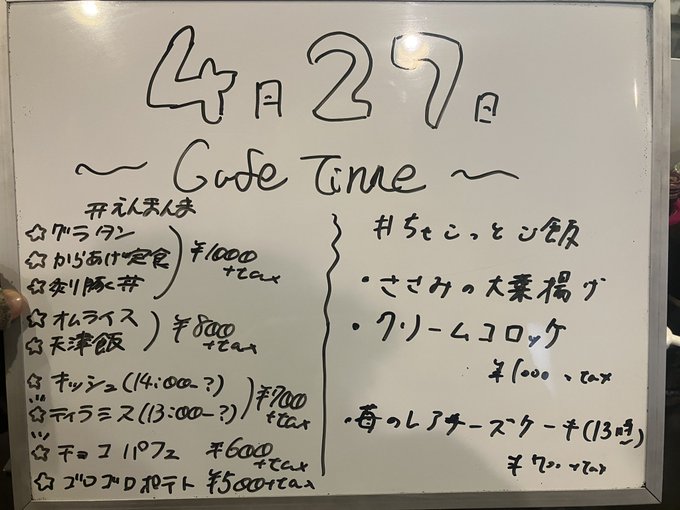 4日27日
～ Cafe Time ～
#えんまんま
☆グラタン
☆からあげ定食
☆炙り豚丼
¥1000+tax
☆オムライス
☆天津飯
¥800+tax
☆キッシュ(14:00~?)
☆ティラミス(13:00~?)
¥700+tax
☆チョコパフェ ¥600+tax
☆ゴロゴロポテト ¥500+tax
#ちょこっとご飯
・ささみの大葉揚げ
・クリームコロッケ
¥1000+tax
・苺のレアチーズケーキ(13時)
¥700+tax